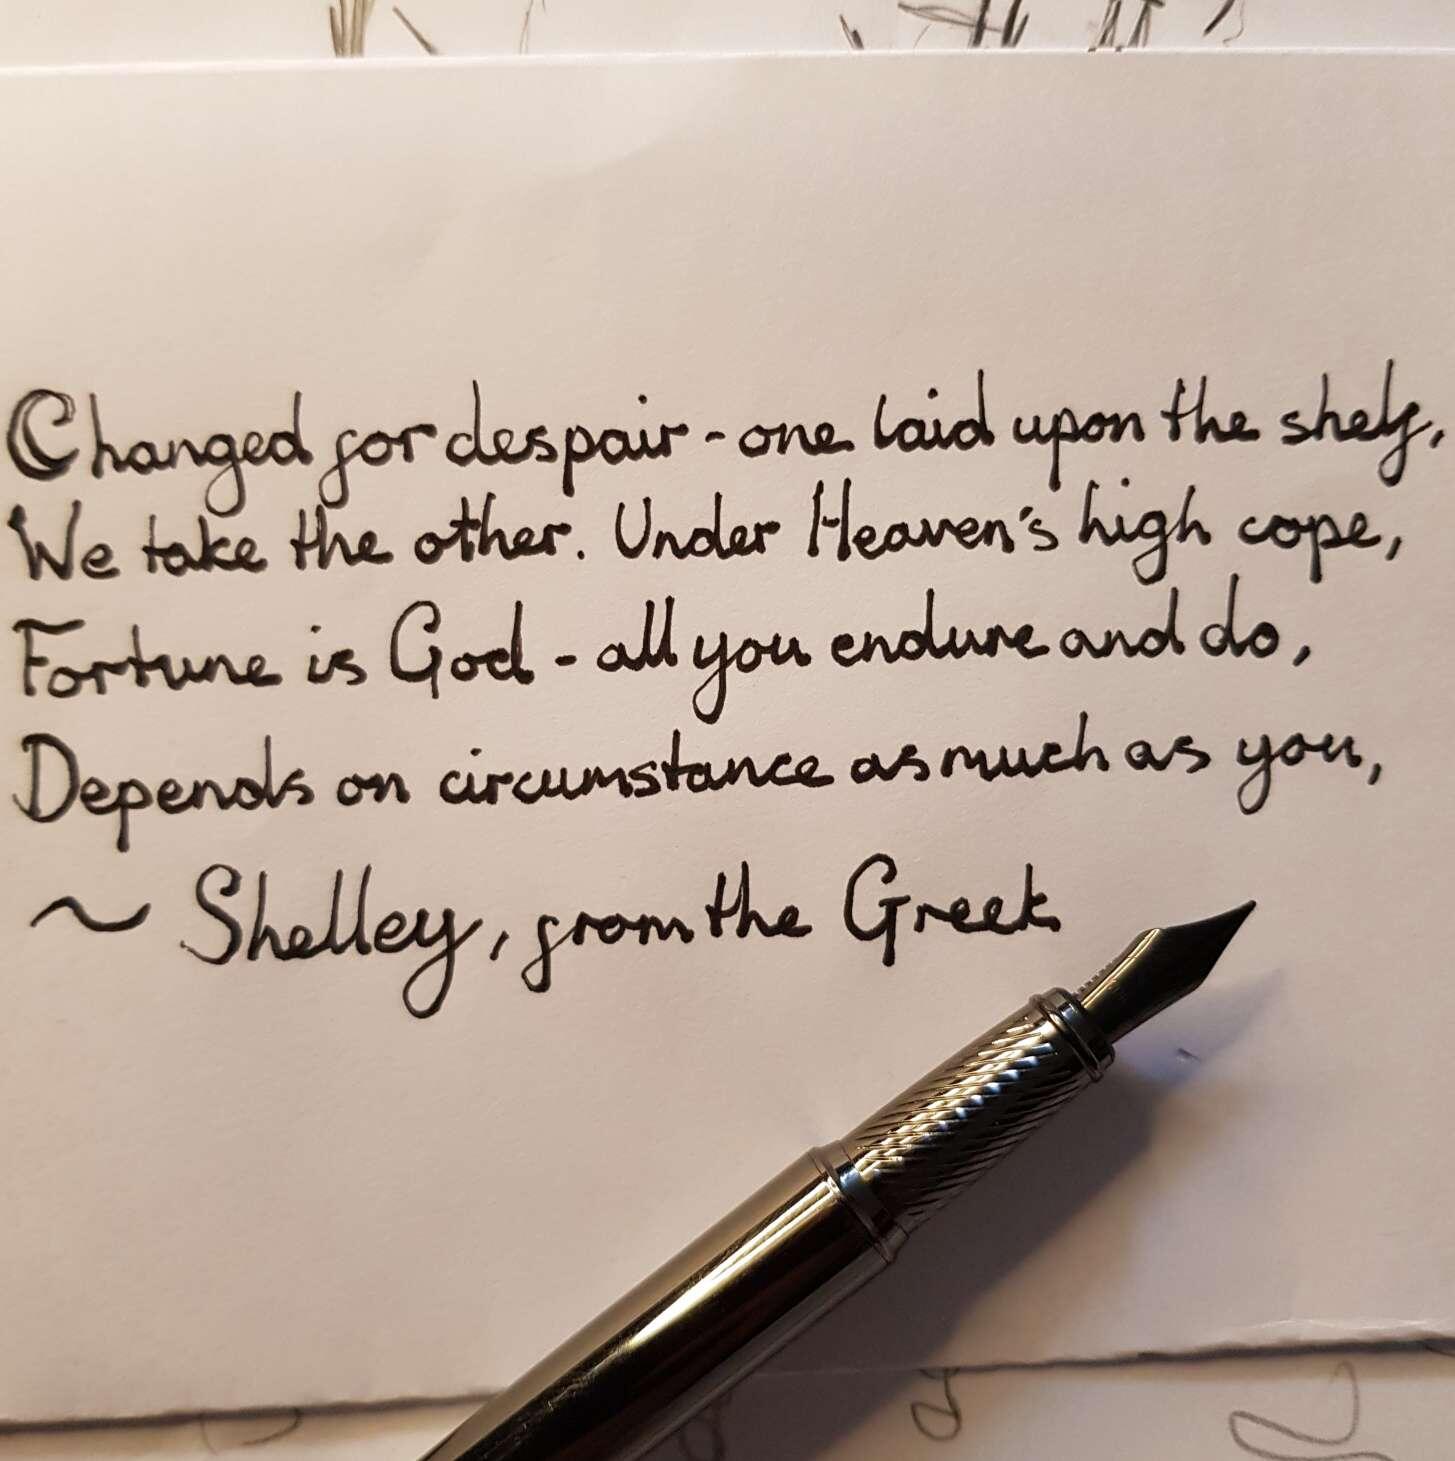 Changed for despair - one laid upon the shelf,
We take the other. Under Heaven's high cope,
Fortune is God - all you endure and do,
Depends on circumstance as much as you,
~ Shelley, from the Greek